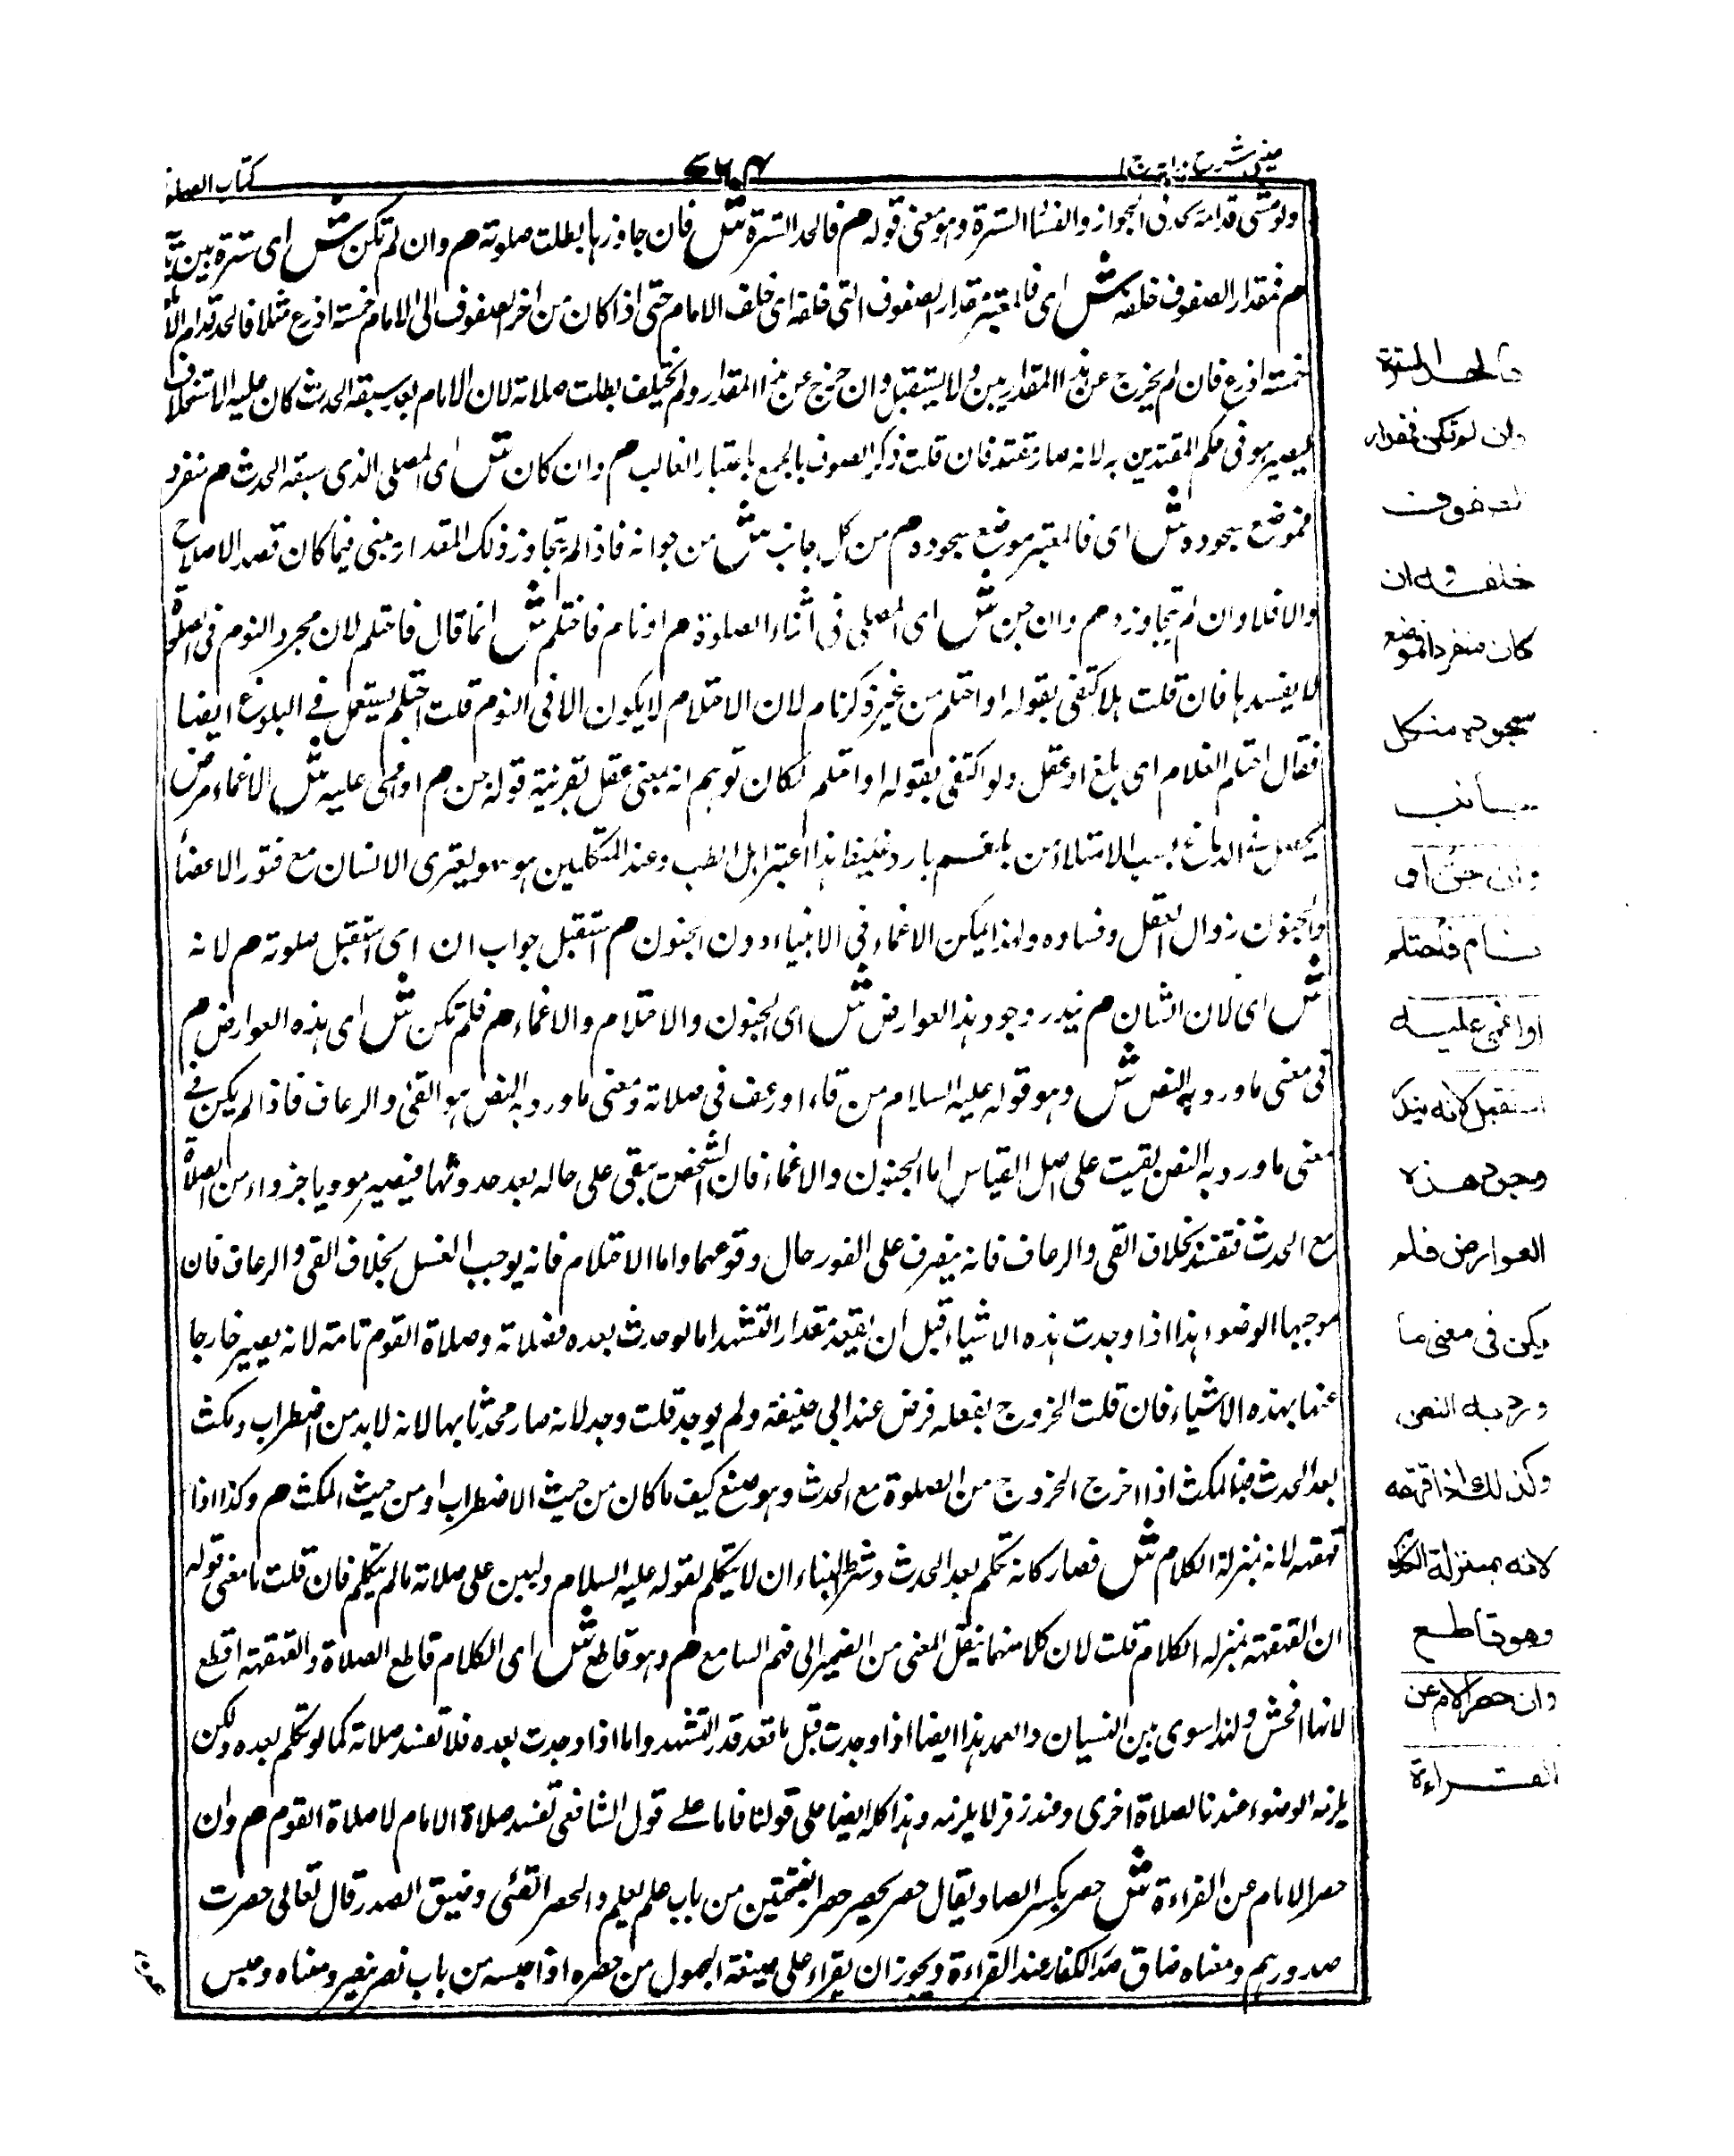 عيني شرح هداية ج ا
٧٦٠٣
كتاب الصلوة
ولو مشى قدامه في الجواز والفساد السترة وهو معنى قوله م فالحد السترة ش فان جاوزها بطلت صلوته م وان لم تكن ش اى سترة بين يديه
م فمقدار الصفوف خلفه ش اى فالمعتبر مقدار الصفوف التى خلفه اى خلف الامام حتى اذا كان من اخر الصفوف الى الامام خمسة اذرع مثلا فالحد قدام الامام
خمسة اذرع فان لم يخرج عن هذا المقدار يبن ولا يستقبل وان خرج عن هذا المقدار ولم يختلف بطلت صلاته لان الامام بعد سبقه الحدث كان عليه الاستخلاف
ليصير هو فى حكم المقتدين به لانه صار مقتد فان قلت ذكر الصفوف بالجمع باعتبار الغالب م وان كان ش اى المصلى الذى سبقه الحدث م منفرد
فموضع سجوده ش اى فالمعتبر موضع سجوده م من كل جانب ش من جوانبه فاذا لم يتجاوز ذلك المقدار يبنى فيما كان قصد الاصلاح
والا فلا وان لم يتجاوزه م وان جن ش اى المصلى فى اثناء الصلوة م او نام فاحتلم ش انما قال فاحتلم لان مجرد النوم فى الصلوة
لا يفسدها فان قلت هلا اكتفى بقوله او احتلم من غير ذكر نام لان الاحتلام لا يكون الا فى النوم قلت احتلم يستعمل فى البلوغ ايضا
فقال احتلم الغلام اى بلغ او عقل ولو اكتفى بقوله او احتلم لكان توهم انه بمعنى عقل بقرينة قوله جن م او اغمى عليه ش الاغماء مرض
يحصل فى الدماغ بسبب الامتلاء من بلغم بارد غليظ هذا اعتبر اهل الطب وعند المتكلمين هو سهو يعترى الانسان مع فتور الاعضاء
والجنون زوال العقل وفساده ولهذا يمكن الاغماء فى الانبياء دون الجنون م استقبل جواب ان اى استقبل صلوته م لانه
ش اى لان الشان م يندر وجود هذا العوارض ش اى الجنون والاحتلام والاغماء م فلم تكن ش اى هذه العوارض م
فى معنى ما ورد به النص ش وهو قوله عليه السلام من قاء او رعف فى صلاته ومعنى ما ورد به النص هو القئ والرعاف فاذا لم يكن فى
معنى ما ورد به النص بقيت على اصل القياس اما الجنون والاغماء فان الشخص يبقى على حاله بعد حدوثهما فيصير موديا جزواء من الصلاة
مع الحدث فتفسد بخلاف القئ والرعاف فانه ينصرف على الفور حال وقوعهما واما الاحتلام فانه يوجب الغسل بخلاف القئ والرعاف فان
موجبهما الوضوء هذا اذا وجدت هذه الاشياء قبل ان يقعد مقدار التشهد اما لو حدث بعده فصلاته وصلاة القوم تامة لانه يصير خارجا
عنها بهذه الاشياء فان قلت الخروج بفعله فرض عند ابى حنيفة ولم يوجد قلت وجد لانه صار محدثا بها لانه لابد من اضطراب ومكث
بعد الحدث فبالمكث اذا اخرج الخروج من الصلوة مع الحدث وهو صنع كيف ما كان من حيث الاضطراب او من حيث المكث م وكذا اذا
قهقه لانه بمنزلة الكلام ش فصار كانه تكلم بعد الحدث وشرط البناء ان لا يتكلم لقوله عليه السلام وليبن على صلاته ما لم يتكلم فان قلت ما معنى قوله
ان القهقهة بمنزلة الكلام قلت لان كلا منهما ينقل المعنى من الضمير الى فهم السامع م وهو قاطع ش اى الكلام قاطع الصلاة والقهقهة اقطع
لانها افحش ولهذا سوى بين النسيان والعمد هذا ايضا اذا وجدت قبل ما قعد قدر التشهد واما اذا وجدت بعده فلا تفسد صلاته كما لو تكلم بعده ولكن
يلزمه الوضوء عندنا لصلاة اخرى وعند زفر لا يلزمه وهذا كله ايضا على قولنا فاما على قول الشافعى تفسد صلاة الامام لا صلاة القوم م وان
حصر الامام عن القراءة ش حصر بكسر الصاد يقال حصر يحصر حصرا بفتحتين من باب علم يعلم والحصر العئى وضيق الصدر قال تعالى حصرت
صدورهم ومعناه ضاق صد الكفار عند القراءة ويجوز ان يقراء على صيغة المجهول من حصره اذا حبسه من باب نصر ينصر ومعناه وحبس
فالحد السترة
وان لم تكن فمقدار
الصفوف
خلفه وان
كان منفردا فموضع
سجوده من كل
جانب
وان جن او
نام فاحتلم
او اغمى عليه
استقبل لانه يندر
وجود هذه
العوارض فلم
يكن فى معنى ما
ورد به النص
وكذلك اذا قهقه
لانه بمنزلة الكلام
وهو قاطع
وان حصر الامام عن
القراءة